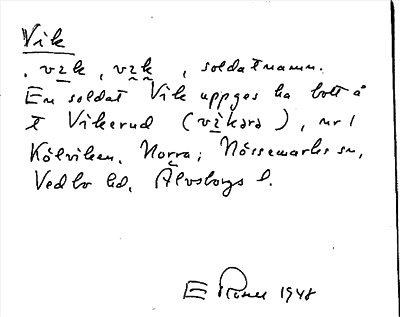 Vik
. vık, vık, soldatnamn.
En soldat Vik uppges ha bott å
t Vikerud (vıkərə), nr 1
Kölviken, Norra; Nössemarks sn,
Vedbo hd, Älvsborgs l.
E 1948